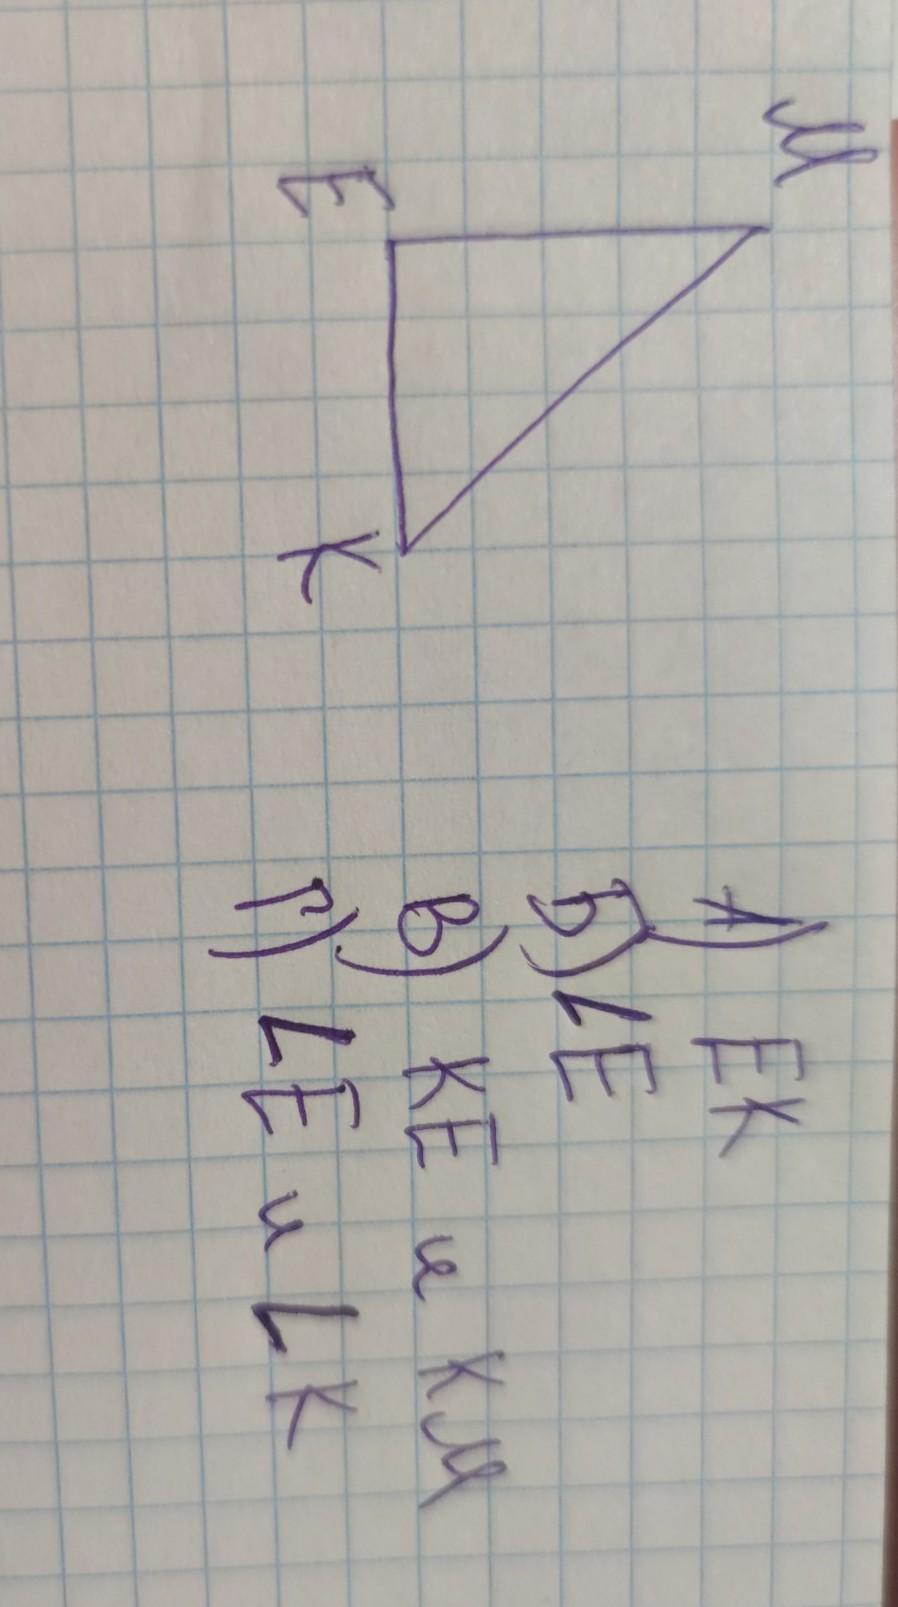 М
Е
К
А) ЕК
Б) ∠Е
В) КЕ и КМ
Г) ∠Е и ∠К